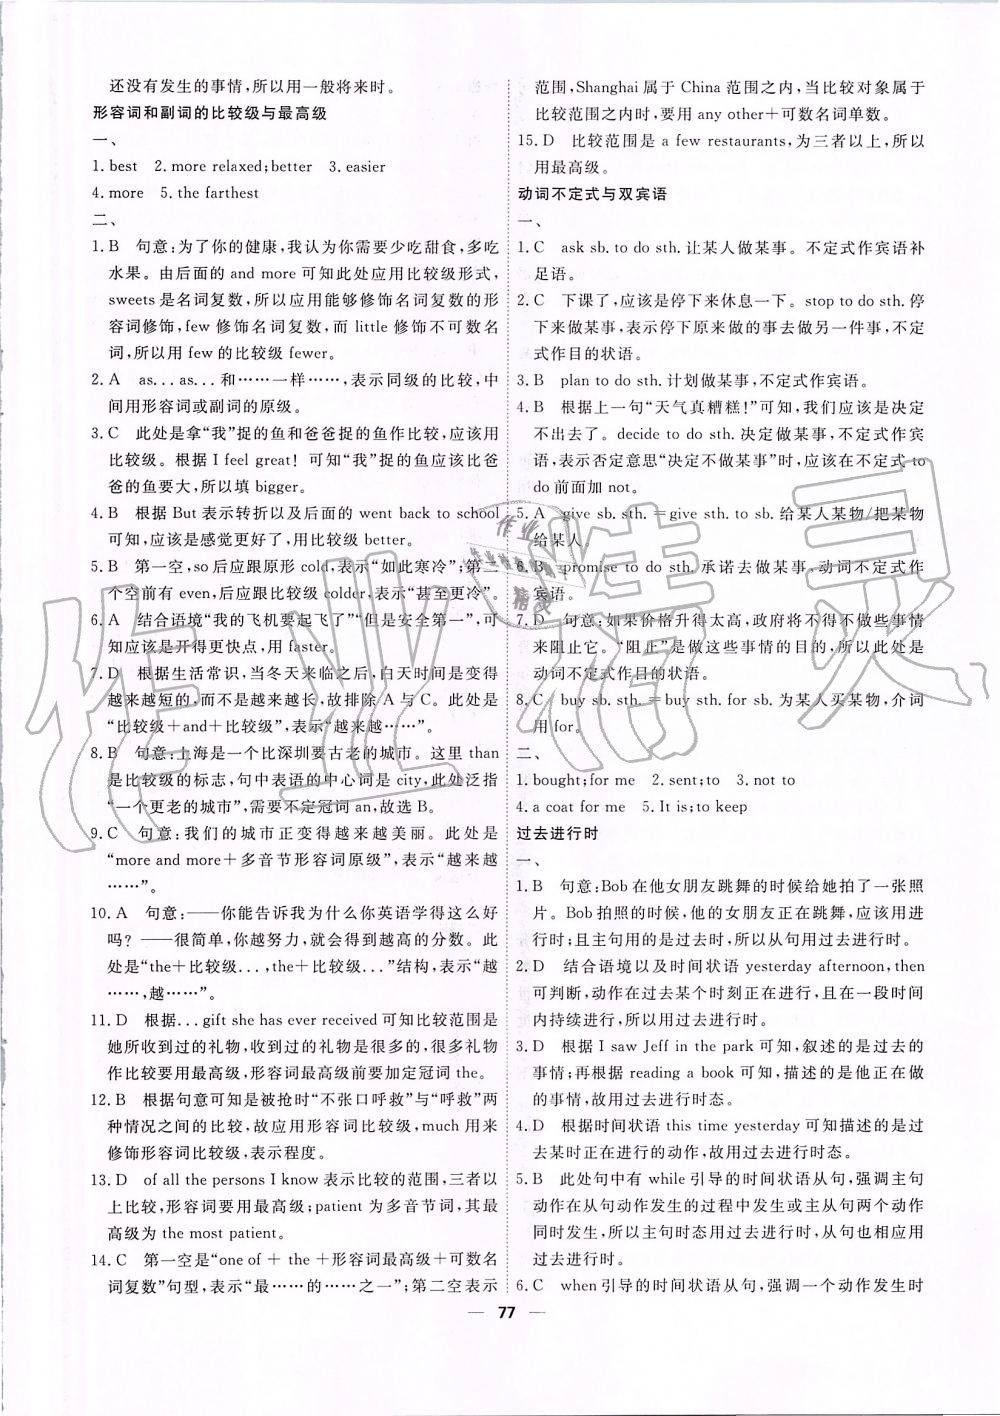 还没有发生的事情,所以用一般将来时。
形容词和副词的比较级与最高级
一、
1. best　2. more relaxed;better　3. easier
4. more　5. the farthest
二、
1. B　句意:为了你的健康,我认为你需要少吃甜食,多吃
水果。由后面的 and more 可知此处应用比较级形式,
sweets是名词复数,所以应用能够修饰名词复数的形
容词修饰,few 修饰名词复数,而 little 修饰不可数名
词,所以用 few 的比较级 fewer。
2. A　as...as...和……一样……,表示同级的比较,中
间用形容词或副词的原级。
3. C　此处是拿“我”捉的鱼和爸爸捉的鱼作比较,应该用
比较级。根据 I feel great! 可知“我”捉的鱼应该比爸
爸的鱼要大,所以填 bigger。
4. B　根据 But 表示转折以及后面的 went back to school
可知,应该是感觉更好了,用比较级 better。
5. B　第一空,so 后应跟原形 cold,表示“如此寒冷”;第二
个空前有 even,后应跟比较级 colder,表示“甚至更冷”。
6. A　结合语境“我的飞机要起飞了”“但是安全第一”,可
知应该是开得更快点,用 faster。
7. D　根据生活常识,当冬天来临之后,白天时间是变得
越来越短的,而不是越来越长,故排除 A 与 C。此处是
“比较级+and+比较级”,表示“越来越……”。
8. B　句意:上海是一个比深圳要古老的城市。这里 than
是比较级的标志,句中表语的中心词是 city,此处泛指
“一个更老的城市”,需要不定冠词 an,故选 B。
9. C　句意:我们的城市正变得越来越美丽。此处是
“more and more+多音节形容词原级”,表示“越来越
……”。
10. A　句意:——你能告诉我为什么你英语学得这么好
吗? ——很简单,你越努力,就会得到越高的分数。此
处是“the+比较级...,the+比较级...”结构,表示“越
……,越……”。
11. D　根据...gift she has ever received 可知比较范围是
她所收到过的礼物,收到过的礼物是很多的,很多礼物
作比较要用最高级,形容词最高级前要加定冠词 the。
12. B　根据句意可知是被抢时“不张口呼救”与“呼救”两
种情况之间的比较,故应用形容词比较级,much 用来
修饰形容词比较级,表示程度。
13. D　of all the persons I know 表示比较的范围,三者以
上比较,形容词要用最高级;patient 为多音节词,其最
高级为 the most patient。
14. C　第一空是“one of + the +形容词最高级+可数名
词复数”句型,表示“最……的……之一”;第二空表示
范围,Shanghai 属于 China 范围之内,当比较对象属于
比较范围之内时,要用 any other+可数名词单数。
15. D　比较范围是 a few restaurants,为三者以上,所以
用最高级。
动词不定式与双宾语
一、
1. C　ask sb. to do sth. 让某人做某事。不定式作宾语补
足语。
2. C　下课了,应该是停下来休息一下。stop to do sth. 停
下来做某事,表示停下原来做的事去做另一件事,不定
式作目的状语。
3. B　plan to do sth. 计划做某事,不定式作宾语。
4. B　根据上一句“天气真糟糕!”可知,我们应该是决定
不出去了。decide to do sth. 决定做某事,不定式作宾
语,表示否定意思“决定不做某事”时,应在不定式 to
do 前面加 not。
5. A　give sb. sth. =give sth. to sb. 给某人某物/把某物
给某人。
6. B　promise to do sth. 承诺去做某事,动词不定式作
宾语。
7. D　句意:如果价格升得太高,政府将不得不做些事情
来阻止它。“阻止”是做这些事情的目的,所以此处是
动词不定式作目的状语。
8. C　buy sb. sth. =buy sth. for sb. 为某人买某物,介词
用 for。
二、
1. bought;for me　2. sent;to　3. not to
4. a coat for me　5. It is;to keep
过去进行时
一、
1. B　句意:Bob 在他女朋友跳舞的时候给她拍了一张照
片。Bob 拍照的时候,他的女朋友正在跳舞,应该用进
行时;且主句用的是过去时,所以从句用过去进行时。
2. D　结合语境以及时间状语 yesterday afternoon,then
可判断,动作在过去某个时刻正在进行,且在一段时间
内持续进行,所以用过去进行时。
3. D　根据 I saw Jeff in the park 可知,叙述的是过去的
事情;再根据 reading a book 可知,描述的是他正在做
的事情,故用过去进行时态。
4. D　根据时间状语 this time yesterday 可知描述的是过
去某时正在进行的动作,故用过去进行时态。
5. B　此处句中有 while 引导的时间状语从句,强调主句
动作在从句动作发生的过程中发生或主从两个动作
同时发生,所以主句时态用过去进行时,从句也相应用
过去进行时。
6. C　when 引导的时间状语从句,强调一个动作发生时
— 77 —
作业精灵
作业
精灵